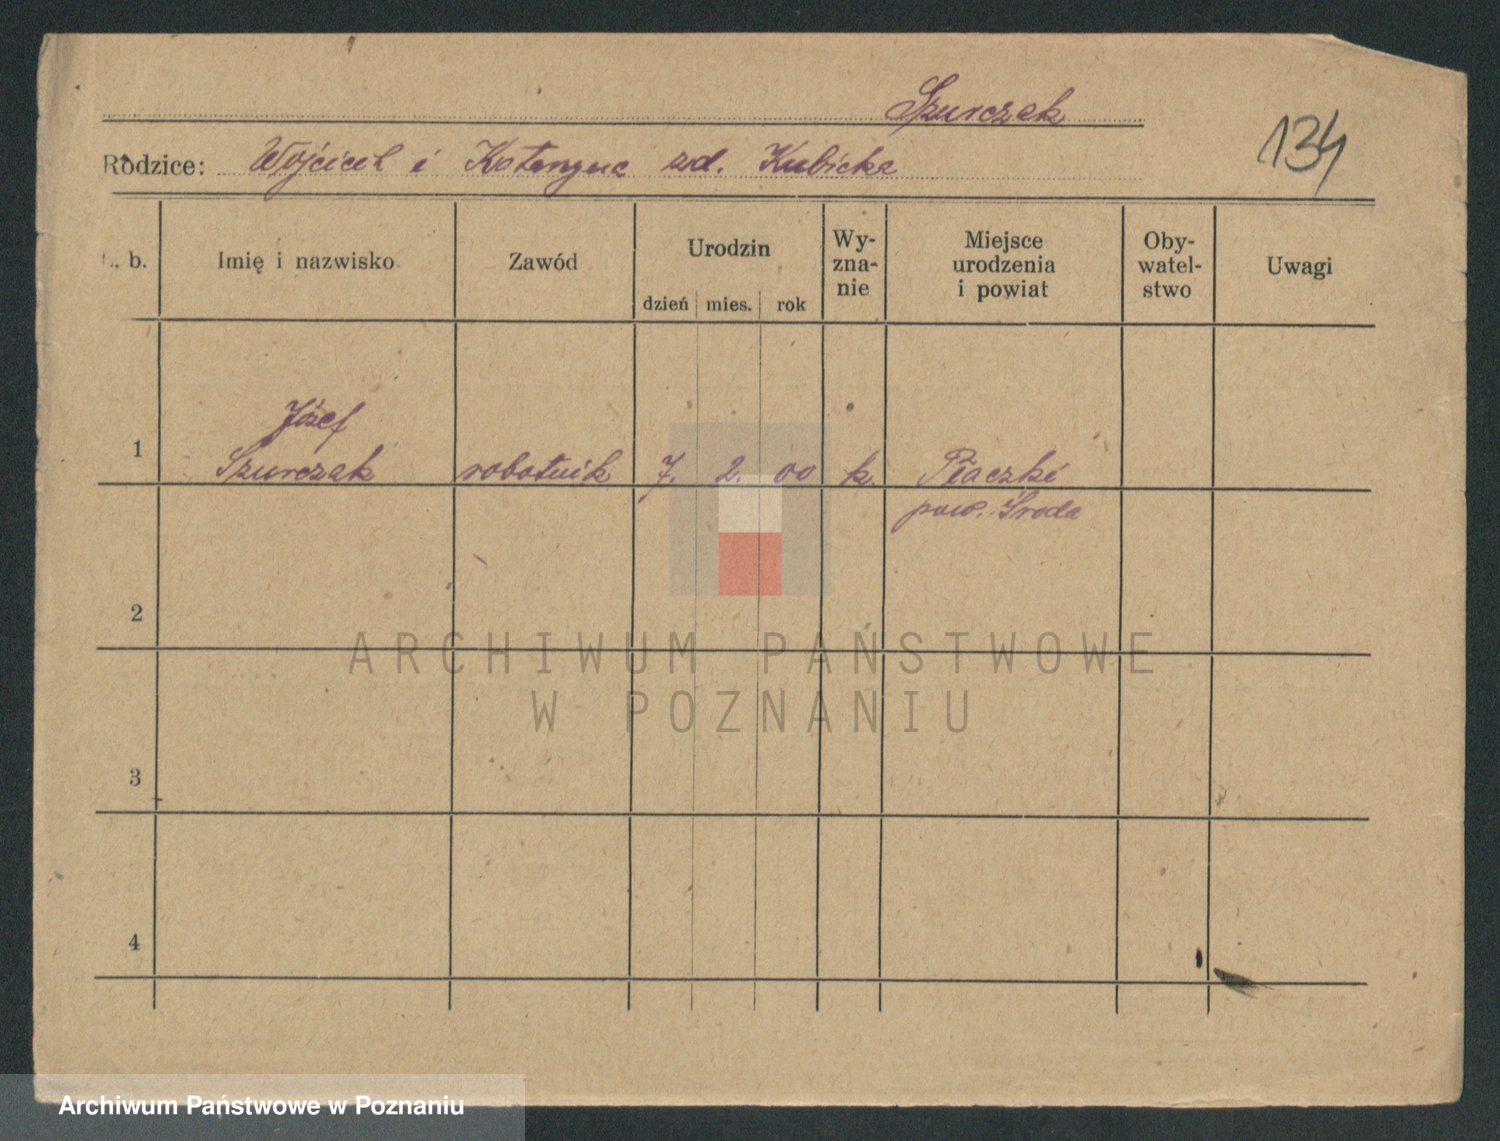 Szurczak
134
Rodzice: Wojciech i Katarzyna zd. Kubicka
L. b.
Imię i nazwisko
Zawód
Urodzin
dzień mies. rok
Wy-
zna-
nie
Miejsce
urodzenia
i powiat
Oby-
watel-
stwo
Uwagi
1
Józef
Szurczak robotnik 7. 2. 00 k. Piaczki
pow. Środa
2
3
4
ARCHIWUM PAŃSTWOWE
W POZNANIU
Archiwum Państwowe w Poznaniu